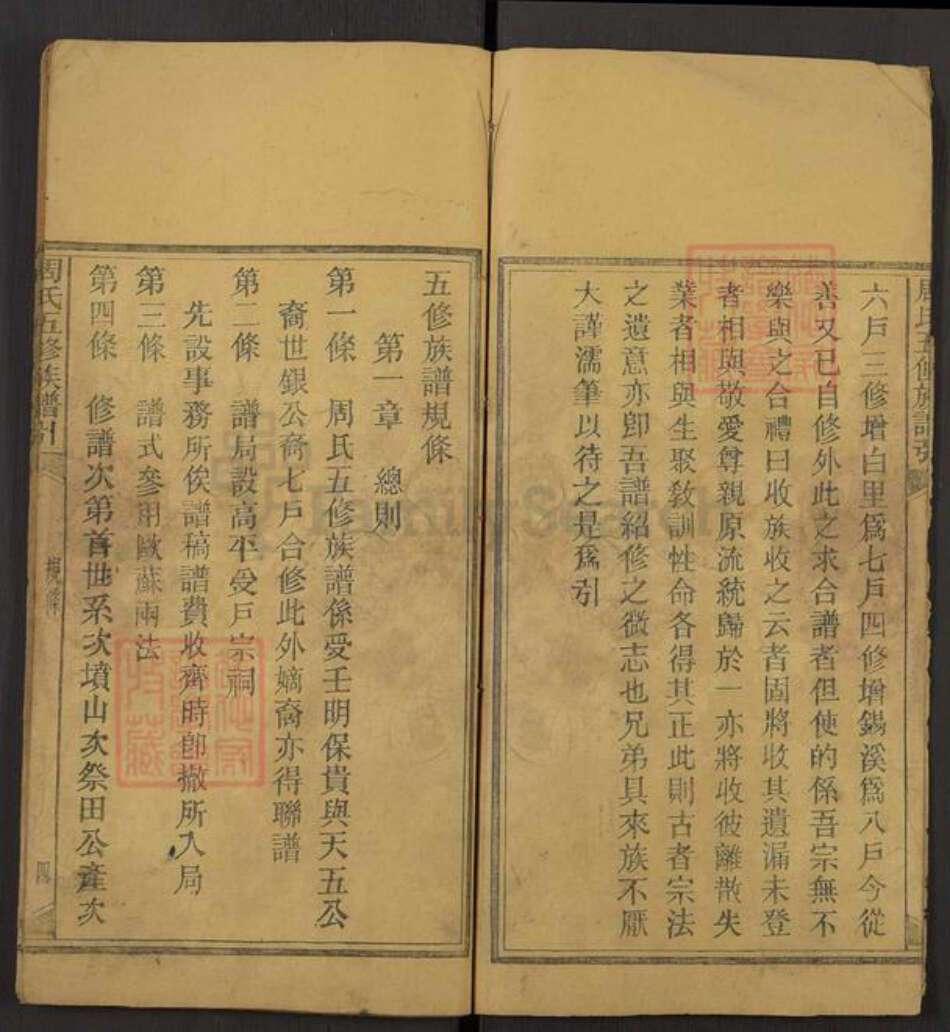 六戶三修增白里爲七戶四修增錫溪爲八戶今從
善又已自修外此之求合譜者但使的係吾宗無不
樂與之合禮曰收族收之云者固將收其遺漏未登
者相與敬愛尊親原流統歸於一亦將收彼離散失
業者相與生聚敎訓性命各得其正此則古者宗法
之遺意亦卽吾譜紹修之微志也兄弟具來族不厭
大謹濡筆以待之是爲引
五修族譜規條
第一章 總則
第一條 周氏五修族譜係受壬明保貴與天五公
裔世銀公裔七戶合修此外嫡裔亦得聯譜
第二條 譜局設高平受戶宗祠
先設事務所俟譜稿譜費收齊時卽撤所入局
第三條 譜式參用歐蘇兩法
第四條 修譜次第首世系次墳山次祭田公產次
周氏五修族譜引
規條
四
周氏五修族譜引
FamilySearch